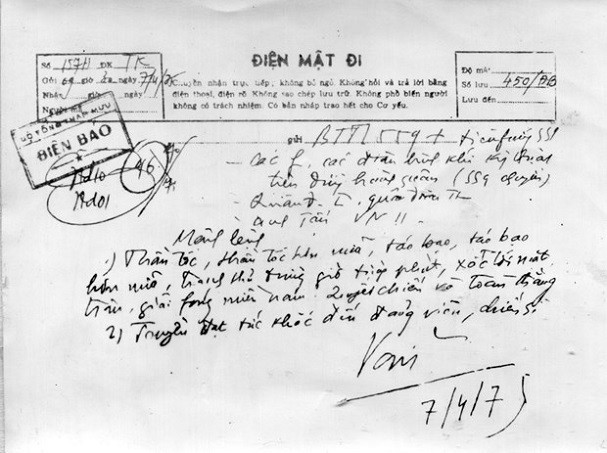 ĐIỆN MẬT ĐI
Số 157H ĐK TK
Gửi giờ ngày 7/4/75
Nhận giờ ngày
Người
Chuyển nhận trực tiếp; không bỏ ngỏ. Không hỏi và trả lời bằng
điện thoại, điện rõ. Không sao chép lưu trữ. Không phổ biến người
không có trách nhiệm. Có bản nhập trao hết cho Cơ yếu.
Độ mật
Số lưu 450/ĐB
Lưu đến
BỘ TỔNG THAM MƯU
ĐIỆN BÁO
gửi BTTL 559
- các f, các đơn
- Quân đ. I, quân đoàn
Mệnh lệnh
1) Thần tốc, thần tốc hơn nữa, táo bạo, táo bạo
hơn nữa, tranh thủ từng giờ từng phút, xốc tới mặt
trận, giải fóng miền nam. Quyết chiến và toàn thắng
2) Truyền đạt tức khắc đến đảng viên, chiến sĩ
Văn
7/4/75